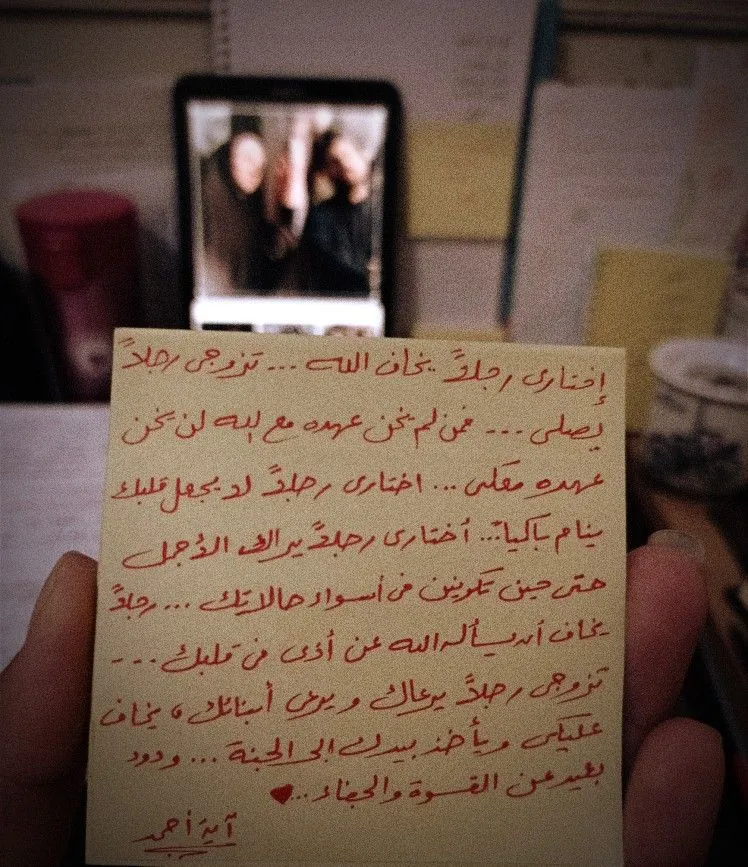 إختارى رجلاً يخاف الله ... تزوجى رجلاً
يصلى ... فمن لم يخن عهده مع الله لن يخن
عهده معكى ... اختارى رجلاً لا يجعل قلبك
ينام باكياً ... أختارى رجلاً يراكى الأجمل
حتى حين تكونين فى أسواء حالاتك ... رجلاً
يخاف أن يسأله الله عن أذى فى قلبك ...
تزوجى رجلاً يرعاك ويرعى أبنائك، يخاف
عليكى ويأخذ بيدك الى الجنة ... ودود
بعيد عن القسوة والجفاء ..
آية أحمد